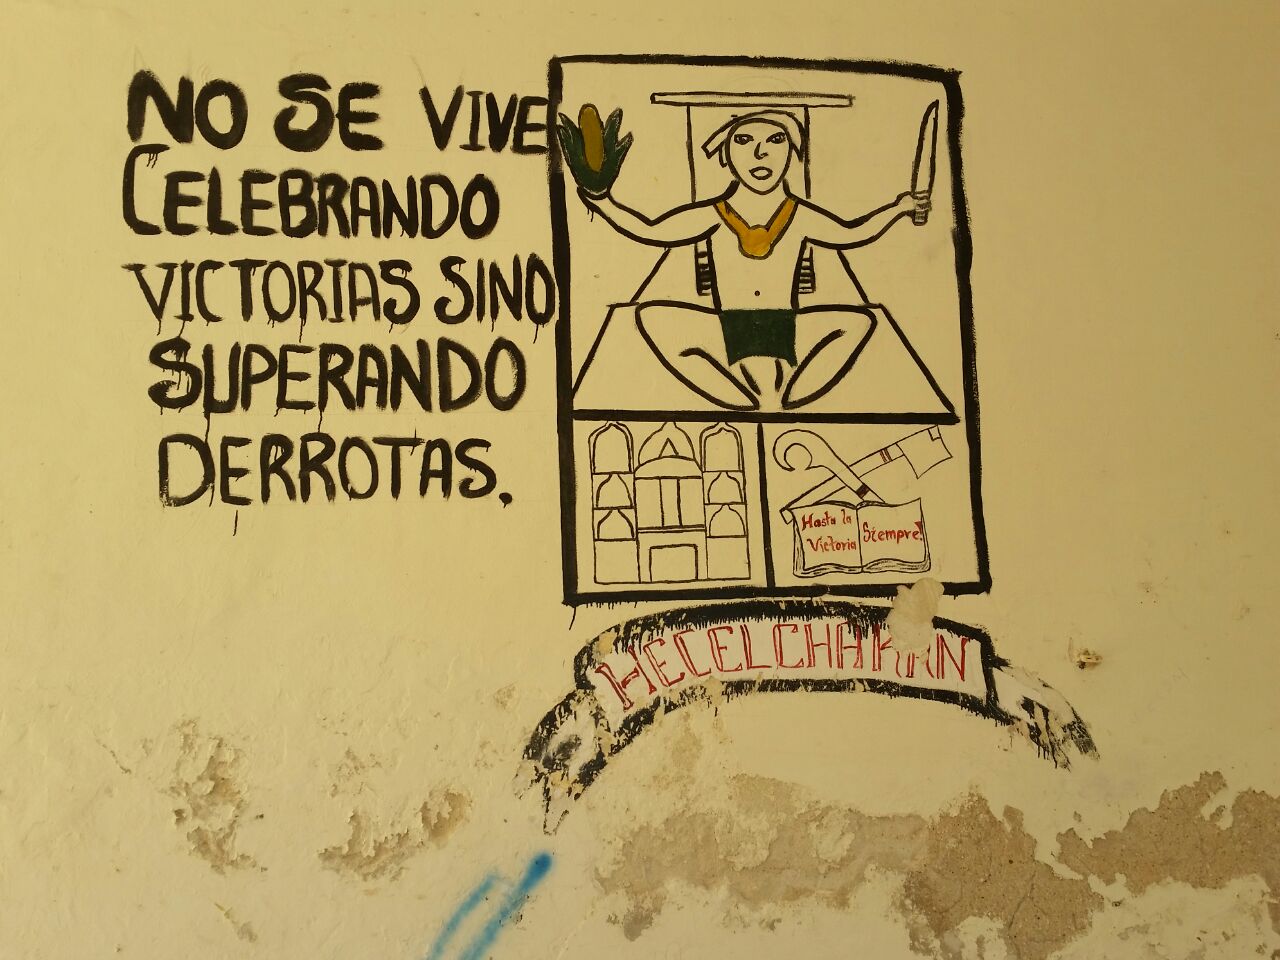 NO SE VIVE
CELEBRANDO
VICTORIAS SINO
SUPERANDO
DERROTAS.
Hasta la
Victoria
Siempre!
HECELCHAKAN